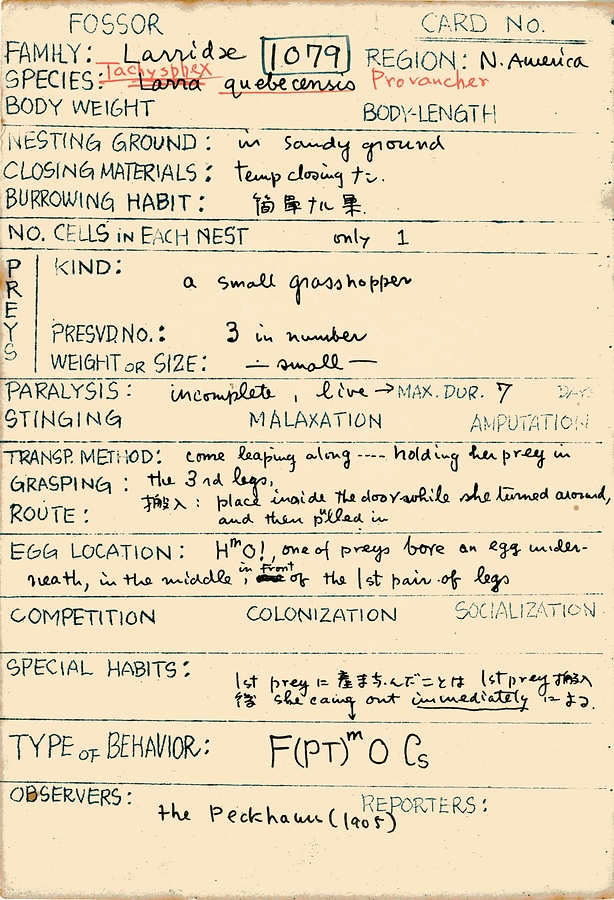 FOSSOR CARD No.
FAMILY: Larridae 1079 REGION: N. America
Tachysphex
SPECIES: Larra quebecensis Provancher
BODY WEIGHT BODY-LENGTH
NESTING GROUND: in sandy ground
CLOSING MATERIALS: temp closing ナシ.
BURROWING HABIT: 簡単ナル巣.
NO. CELLS in EACH NEST only 1
PREYS
KIND: a small grasshopper
PRESVD. NO.: 3 in number
WEIGHT OR SIZE: — small —
PARALYSIS: incomplete, live → MAX. DUR. 7 DAYS
STINGING MALAXATION AMPUTATION
TRANSP. METHOD: come leaping along ---- holding her prey in
GRASPING: the 3rd legs,
搬入: place inside the door while she turned around,
ROUTE: and then pulled in
EGG LOCATION: HᵐO!, one of preys bore an egg under-
neath, in the middle, in front of the 1st pair of legs
COMPETITION COLONIZATION SOCIALIZATION
SPECIAL HABITS:
1st prey に産まれたことは 1st prey 搬入
後 she came out immediately による.
TYPE OF BEHAVIOR: F(PT)ᵐ O Cs
OBSERVERS: REPORTERS:
the Peckham (1905)